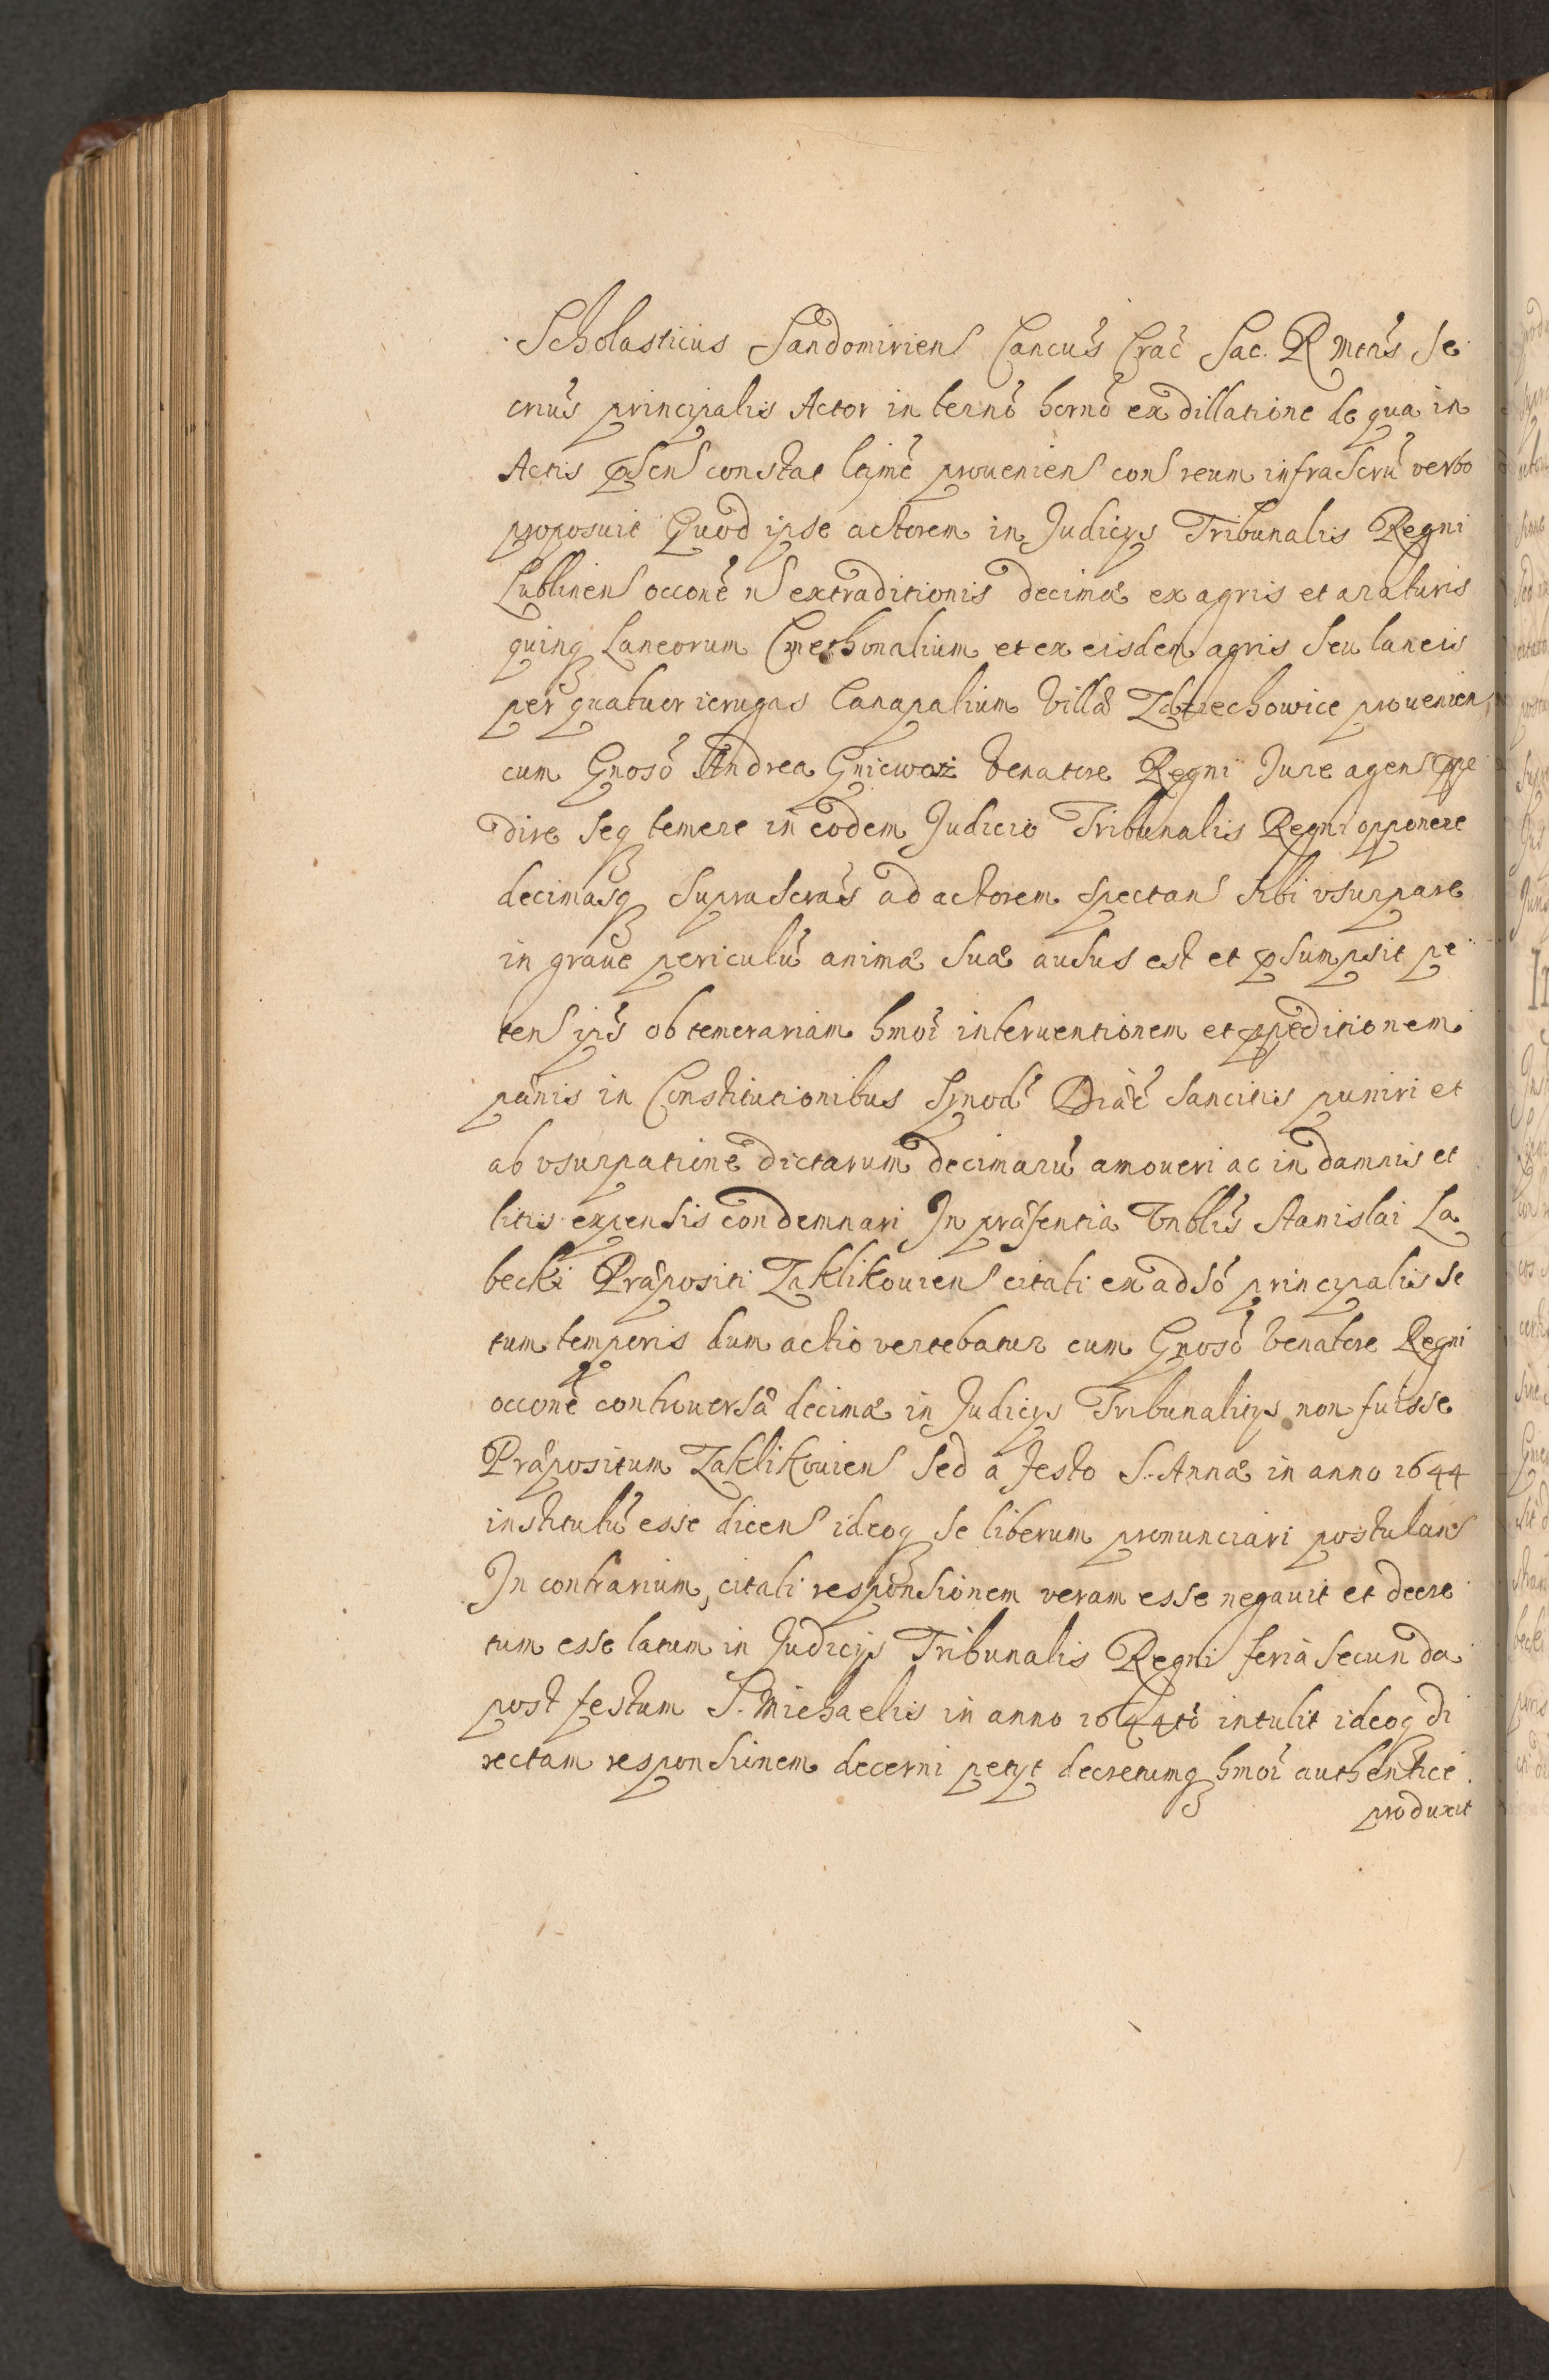 Scholasticus Sandomiriens Cancus Crac Sac. R Mttis Se
crius principalis Actor in termo horno ex dillatione de qua in
Actis psens constat ltjme proueniens cons reum infrascru verbo
proposuit Quod ipse actorem in Judicijs Tribunalis Regni
Lublinens occone ns extraditionis decimæ ex agris et araturis
quinq Laneorum Cmethonalium et ex eisdem agris seu laneis
per quatuor ierugas Canapalium Villæ Zdziechowice prouenien
cum Gnoso Andrea Gniewosz Venatore Regni Jure agens ppe
dire seq temere in eodem Judicio Tribunalis Regni opponere
decimasq suprascras ad actorem spectans sibi vsurpare
in graue periculu animæ suæ ausus est et psumpsit pe
tens ips ob temerariam hmoi interuentionem et ppeditionem
pænis in Constitutionibus Synod Diæc sancitis puniri et
ab vsurpatione dictarum decimaru amoueri ac in damnis et
litis expensis condemnari In præsentia Vnblis Stanislai La
becki Præpositi Zaklikouiens citati ex adso principalis se
tum temporis dum actio vertebatur cum Gnoso Venatore Regni
occone controuersæ decimæ in Judicijs Tribunalitijs non fuisse
Præpositum Zaklikouiens sed a festo S. Annæ in anno 1644
institutu esse dicens ideoq se liberum pronunciari postulans
In contrarium, citati responsionem veram esse negauit et decre
tum esse latum in Judicijs Tribunalis Regni feria secunda
post festum S. Michaelis in anno 1644to intulit ideoq di
rectam responsionem decerni petijt decretumq hmoi authentice
produxit